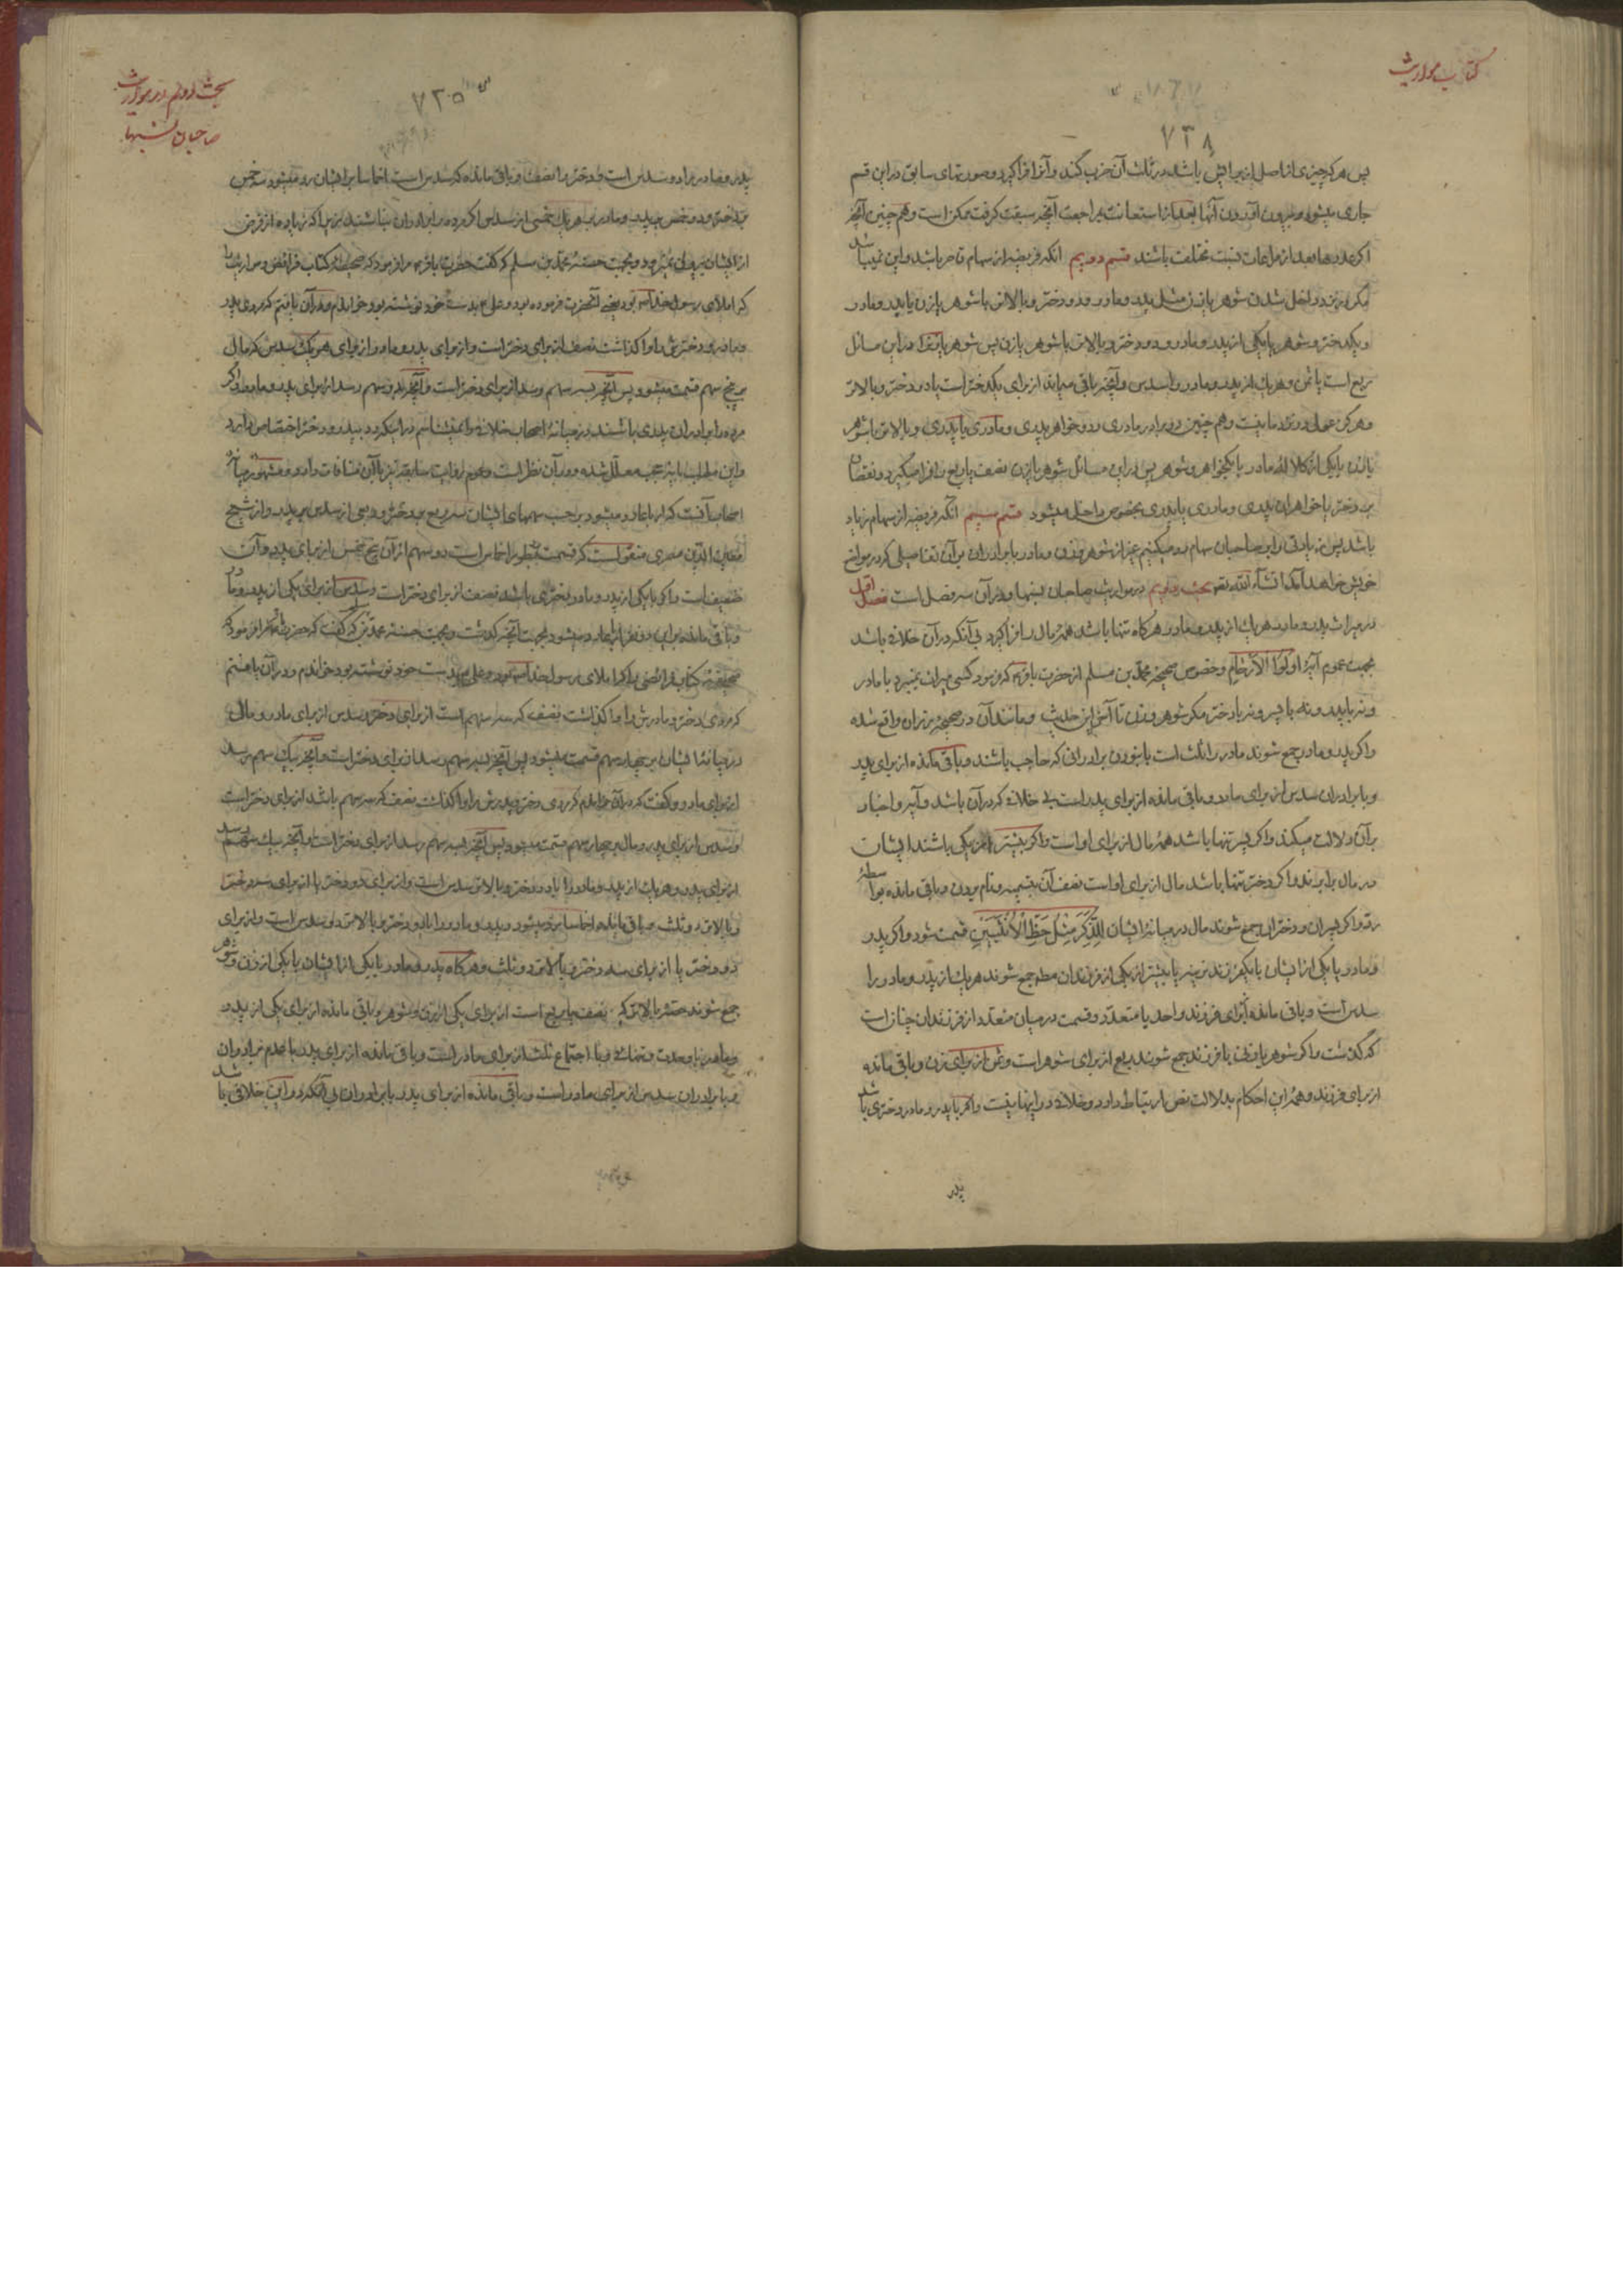 کتاب مواریث
۷۳۸
پس هر که چیزی از اصل از برایش باشد در ثلث آن ضرب کند و آنرا فرا گیرد و صورتهای سابق در این قسم
جاری میشود و بیرون آوردن آنها بعد از استعانت بمراجعت آنچه سبقت گرفت ممکن است و هم چنین آنچه
اگر عددها بعد از مراعات نسبت مختلف باشند قسم دویم آنکه فریضه از سهام قاصر باشد و این نمیباشد
مگر بزن و داخل شدن شوهر یا زن مثل پدر و مادر و دو دختر و بالاتر با شوهر یا زن یا پدر و مادر
و یکدختر و شوهر یا یکی از پدر و مادر و دو دختر و بالاتر با شوهر یا زن پس شوهر یا زن را در این مسائل
ربع است یا ثمن و هر یک از پدر و مادر را سدس و آنچه باقی میماند از برای یکدختر است یا دو دختر و بالاتر
و هرگز عول در نزد ما نیست و هم چنین دو برادر مادری و دو خواهر پدری و مادری یا پدری و بالاتر با شوهر
یا زن یا یکی از کلاله مادر با یکخواهر و شوهر پس در این مسائل شوهر یا زن نصف یا ربع را فرا میگیرد و نقصان
بر دختر یا خواهران پدری و مادری یا پدری بخصوص داخل میشود قسم سیم آنکه فریضه از سهام زیاد
باشد پس زیادتی را بر صاحبان سهام رد میکنیم غیر از شوهر و زن و مادر با برادران بر آن تفاصیلی که در مواضع
خویش خواهد آمد انشاء الله تعالی بحث دویم در مواریث صاحبان نسبها و در آن سه فصل است فصل اول
در میراث پدر و مادر هر یک از پدر و مادر هرگاه تنها باشد همه مال را فرا گیرد بی آنکه در آن خلاف باشد
بجهت عموم آیه اولوا الارحام و خصوص صحیحه محمد بن مسلم از حضرت باقر که فرمود کسی میراث نمیبرد با مادر
و نه با پدر و نه با پسر و نه با دختر مگر شوهر و زن تا آخر این حدیث و مانند آن در صحیحه بزنان واقع شده
و اگر پدر و مادر جمع شوند مادر را ثلث است با نبودن برادرانی که حاجب باشند و باقی مانده از برای پدر
و با برادران سدس از برای مادر و باقی مانده از برای پدر است بی خلاف که در آن باشد و آیه و اخبار
بر آن دلالت میکند و اگر پسر تنها باشد همه مال از برای او است و اگر بیشتر از یکی باشند ایشان
در مال برابرند و اگر دختر تنها باشد مال از برای اوست نصف آن بتسمیه و نام بردن و باقی مانده بواسطه
رد و اگر پسران و دختران جمع شوند مال در میانه ایشان لِلذَّکَرِ مِثْلُ حَظِّ الْاُنْثَیَیْنِ قسمت شود و اگر پدر
و مادر یا یکی از ایشان با یکفرزند نرینه یا بیشتر از یکی از فرزندان مط جمع شوند هر یک از پدر و مادر را
سدس است و باقی مانده برای فرزند واحد یا متعدد و قسمت در میان متعدد از فرزندان چنان است
که گذشت و اگر شوهر یا زن با فرزند جمع شوند ربع از برای شوهر است و ثمن از برای زن و باقی مانده
از برای فرزند و همه این احکام بدلالت نص ارتباط دارد و خلاف در اینها نیست و اگر با پدر و مادر دختری باشد
پدر
بحث دویم در مواریث
صاحبان نسبها
۷۳۵
پدر و مادر را دو سدس است و دختر را نصف و باقی مانده که سدس است اخماسا بر ایشان رد میشود سه خمس
بدختر و دو خمس بپدر و مادر هر یک خمسی از سدس اگر مرده را برادران نباشند زیرا که زیاده از فرض
از ایشان بیرون نمیرود و بجهت حسنه محمد بن مسلم که گفت حضرت باقر مرا فرمود که صحیفه کتاب فرائض و مواریث را
که املای رسول خدا بود یعنی آنحضرت فرموده بود و علی بدست خود نوشته بود خواندم و در آن یافتم که مردی پدر
و مادر و دخترش را وا گذاشت نصف از برای دختر است و از برای پدر و مادر از برای هر یک سدس که مال
بر پنج سهم قسمت میشود پس آنچه بسه سهم رسد از برای دختر است و آنچه بدو سهم رسد از برای پدر و مادر و اگر
مرده را برادران پدری باشند در میانه اصحاب خلاف را نمیشناسم در اینکه رد بپدر و دختر اختصاص دارد
و این مطلب باینوجه معلل شده و در آن نظر است و عموم روایت سابقه نیز با آن منافات دارد و مشهور میانه
اصحاب آنست که ارباعا رد میشود بر حسب سهمهای ایشان سه ربع بدختر و ربعی از سدس بپدر و از شیخ
معین الدین مصری منقول است که قسمت بطور اخماس است دو سهم از آن پنج خمس از برای پدر و آن
ضعیف است و اگر با یکی از پدر و مادر دختری باشد نصف از برای دختر است و سدس از برای یکی از پدر و مادر
و باقی مانده بر این دو نفر ارباعا رد میشود بجهت آنچه گذشت و بجهت حسنه محمد بن که گفت که حضرت باقر مرا فرمود که
صحیفه کتاب فرائضی را که املای رسول خدا بود و علی بدست خود نوشته بود خواندم و در آن یافتم
که مردی دختر و مادرش را وا گذاشت نصف که سه سهم است از برای دختر و سدس از برای مادر و مال
در میانه ایشان بر چهار سهم قسمت میشود پس آنچه بسه سهم رسد از برای دختر است و آنچه بیک سهم رسد
از برای مادر و گفت که در آن خواندم که مردی دختر و پدرش را وا گذاشت نصف که سه سهم باشد از برای دختر است
و سدس از برای پدر و مال بر چهار سهم قسمت میشود پس آنچه بسه سهم رسد از برای دختر است و آنچه بیک سهم رسد
از برای پدر و هر یک از پدر و مادر را با دو دختر و بالاتر سدس است و از برای دو دختر یا از برای سه دختر
و بالاتر دو ثلث و باقی مانده اخماسا رد میشود و پدر و مادر را با دو دختر و بالاتر دو سدس است و از برای
دو دختر یا از برای سه دختر و بالاتر دو ثلث و هرگاه پدر و مادر یا یکی از ایشان با یکی از زن و شوهر
جمع شوند حصه بالاتر که نصف یا ربع است از برای یکی از زن و شوهر و باقی مانده از برای یکی از پدر و
و مادر با وحدت و تنهائی و با اجتماع ثلث از برای مادر است و باقی مانده از برای پدر با عدم برادران
و با برادران سدس از برای مادر است و باقی مانده از برای پدر با برادران بی آنکه در این خلافی باشد